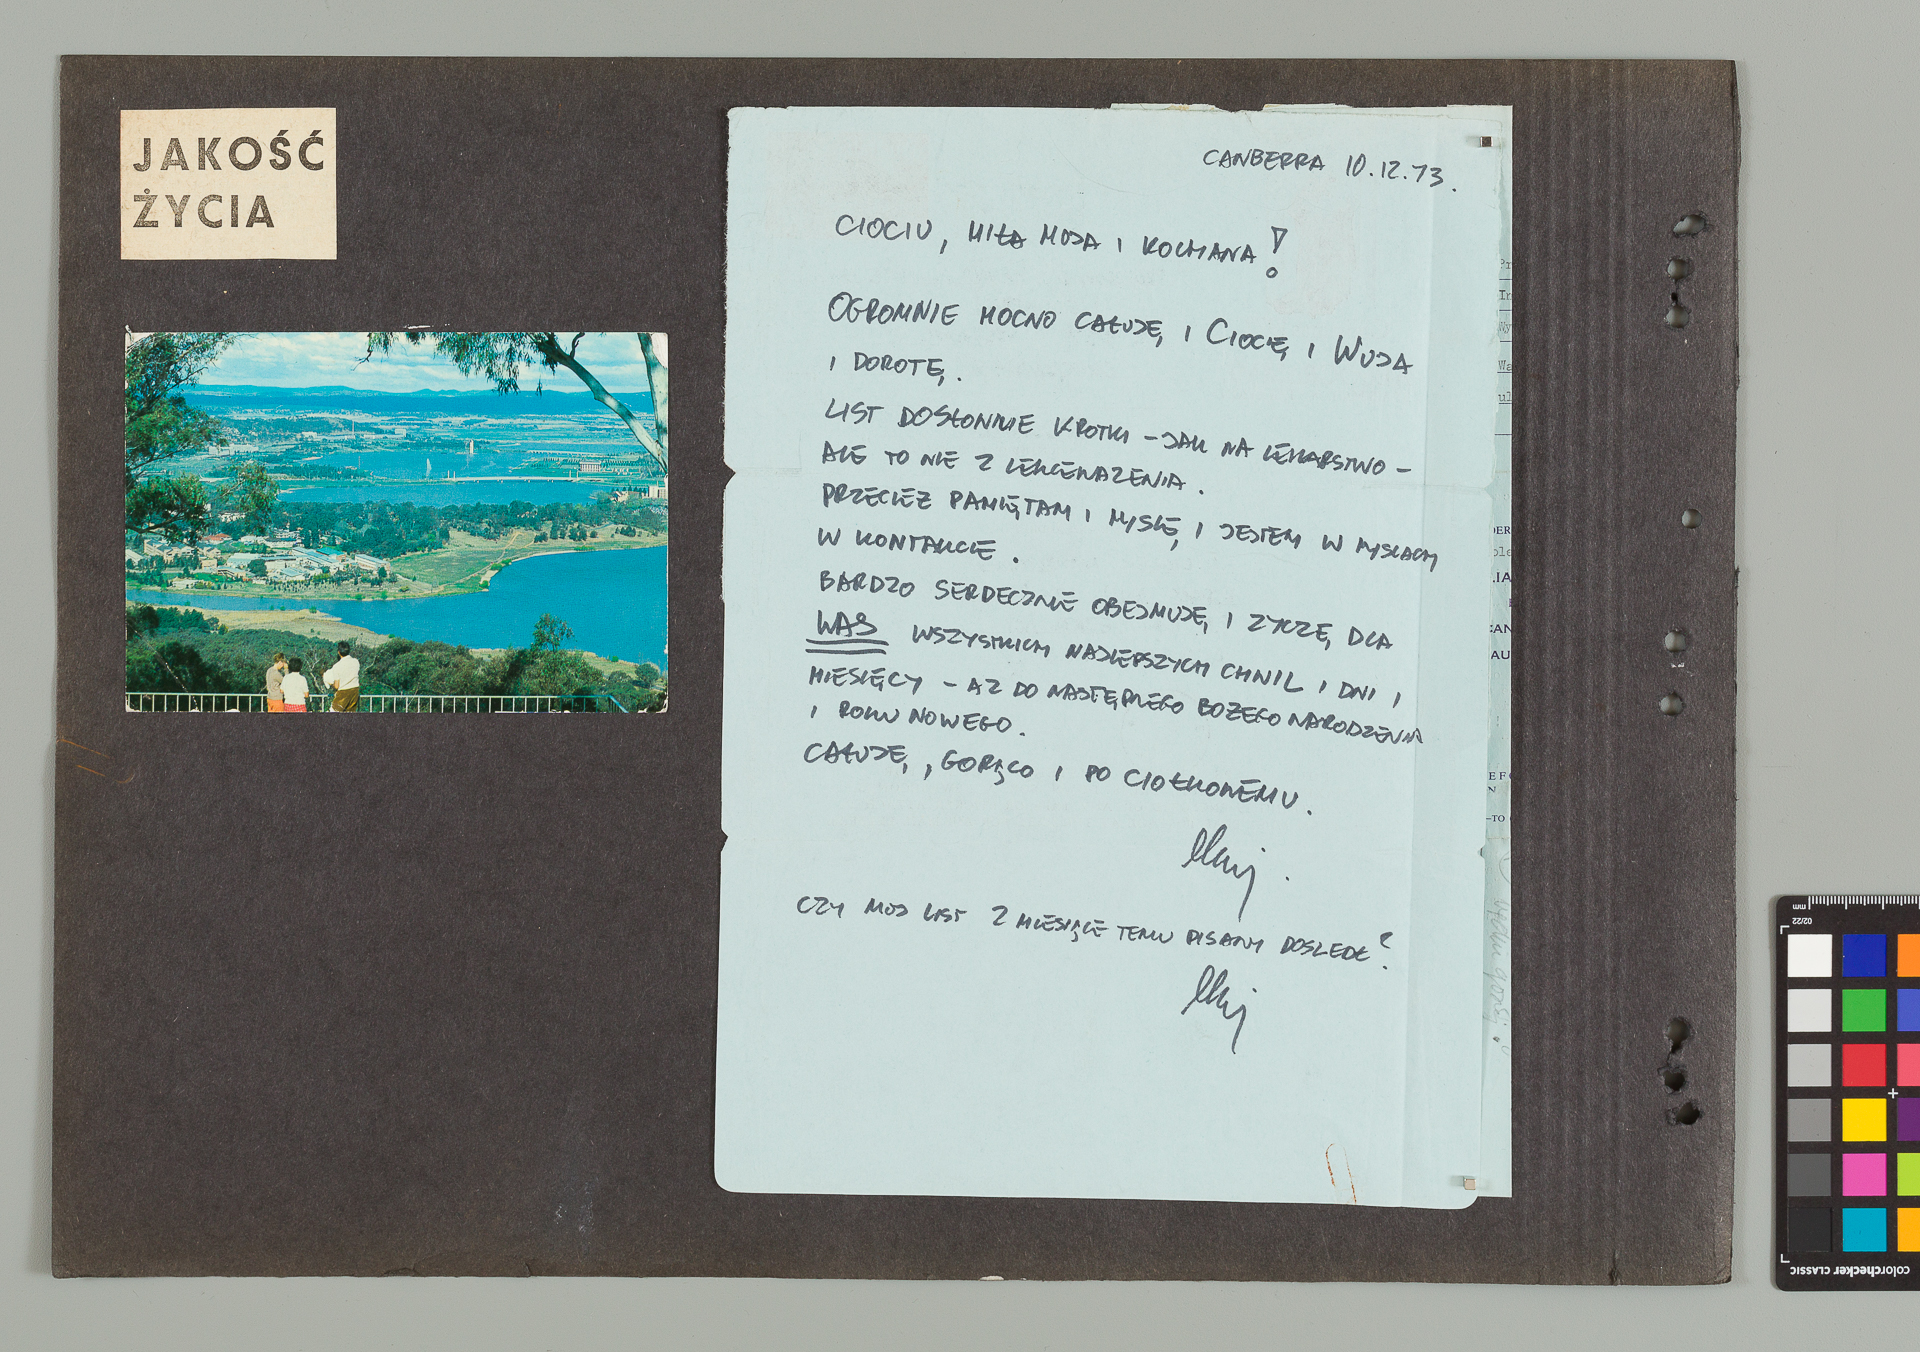 JAKOŚĆ
ŻYCIA
CANBERRA 10.12.73.
CIOCIU, MIŁA MOJA I KOCHANA!
OGROMNIE MOCNO CAŁUJĘ, I CIOCIĘ, I WUJA
I DOROTĘ.
LIST DOSŁOWNIE KROTKI – JAK NA LEKARSTWO –
ALE TO NIE Z LEKCEWAZENIA.
PRZECIEZ PAMIĘTAM I MYSLĘ, I JESTEM W MYSLACH
W KONTAKCIE.
BARDZO SERDECZNIE OBEJMUJĘ, I ZYCZĘ, DLA
WAS WSZYSTKICH NAJLEPSZYCH CHWIL I DNI I
MIESIĘCY – AZ DO NASTĘPNEGO BOZEGO NARODZENIA
I ROKU NOWEGO.
CAŁUJĘ, GORĄCO I PO CIOŁKOWEMU.
CZY MOJ LIST 2 MIESIĄCE TEMU PISANY DOSZEDŁ?
mm
02/22
colorchecker CLASSIC